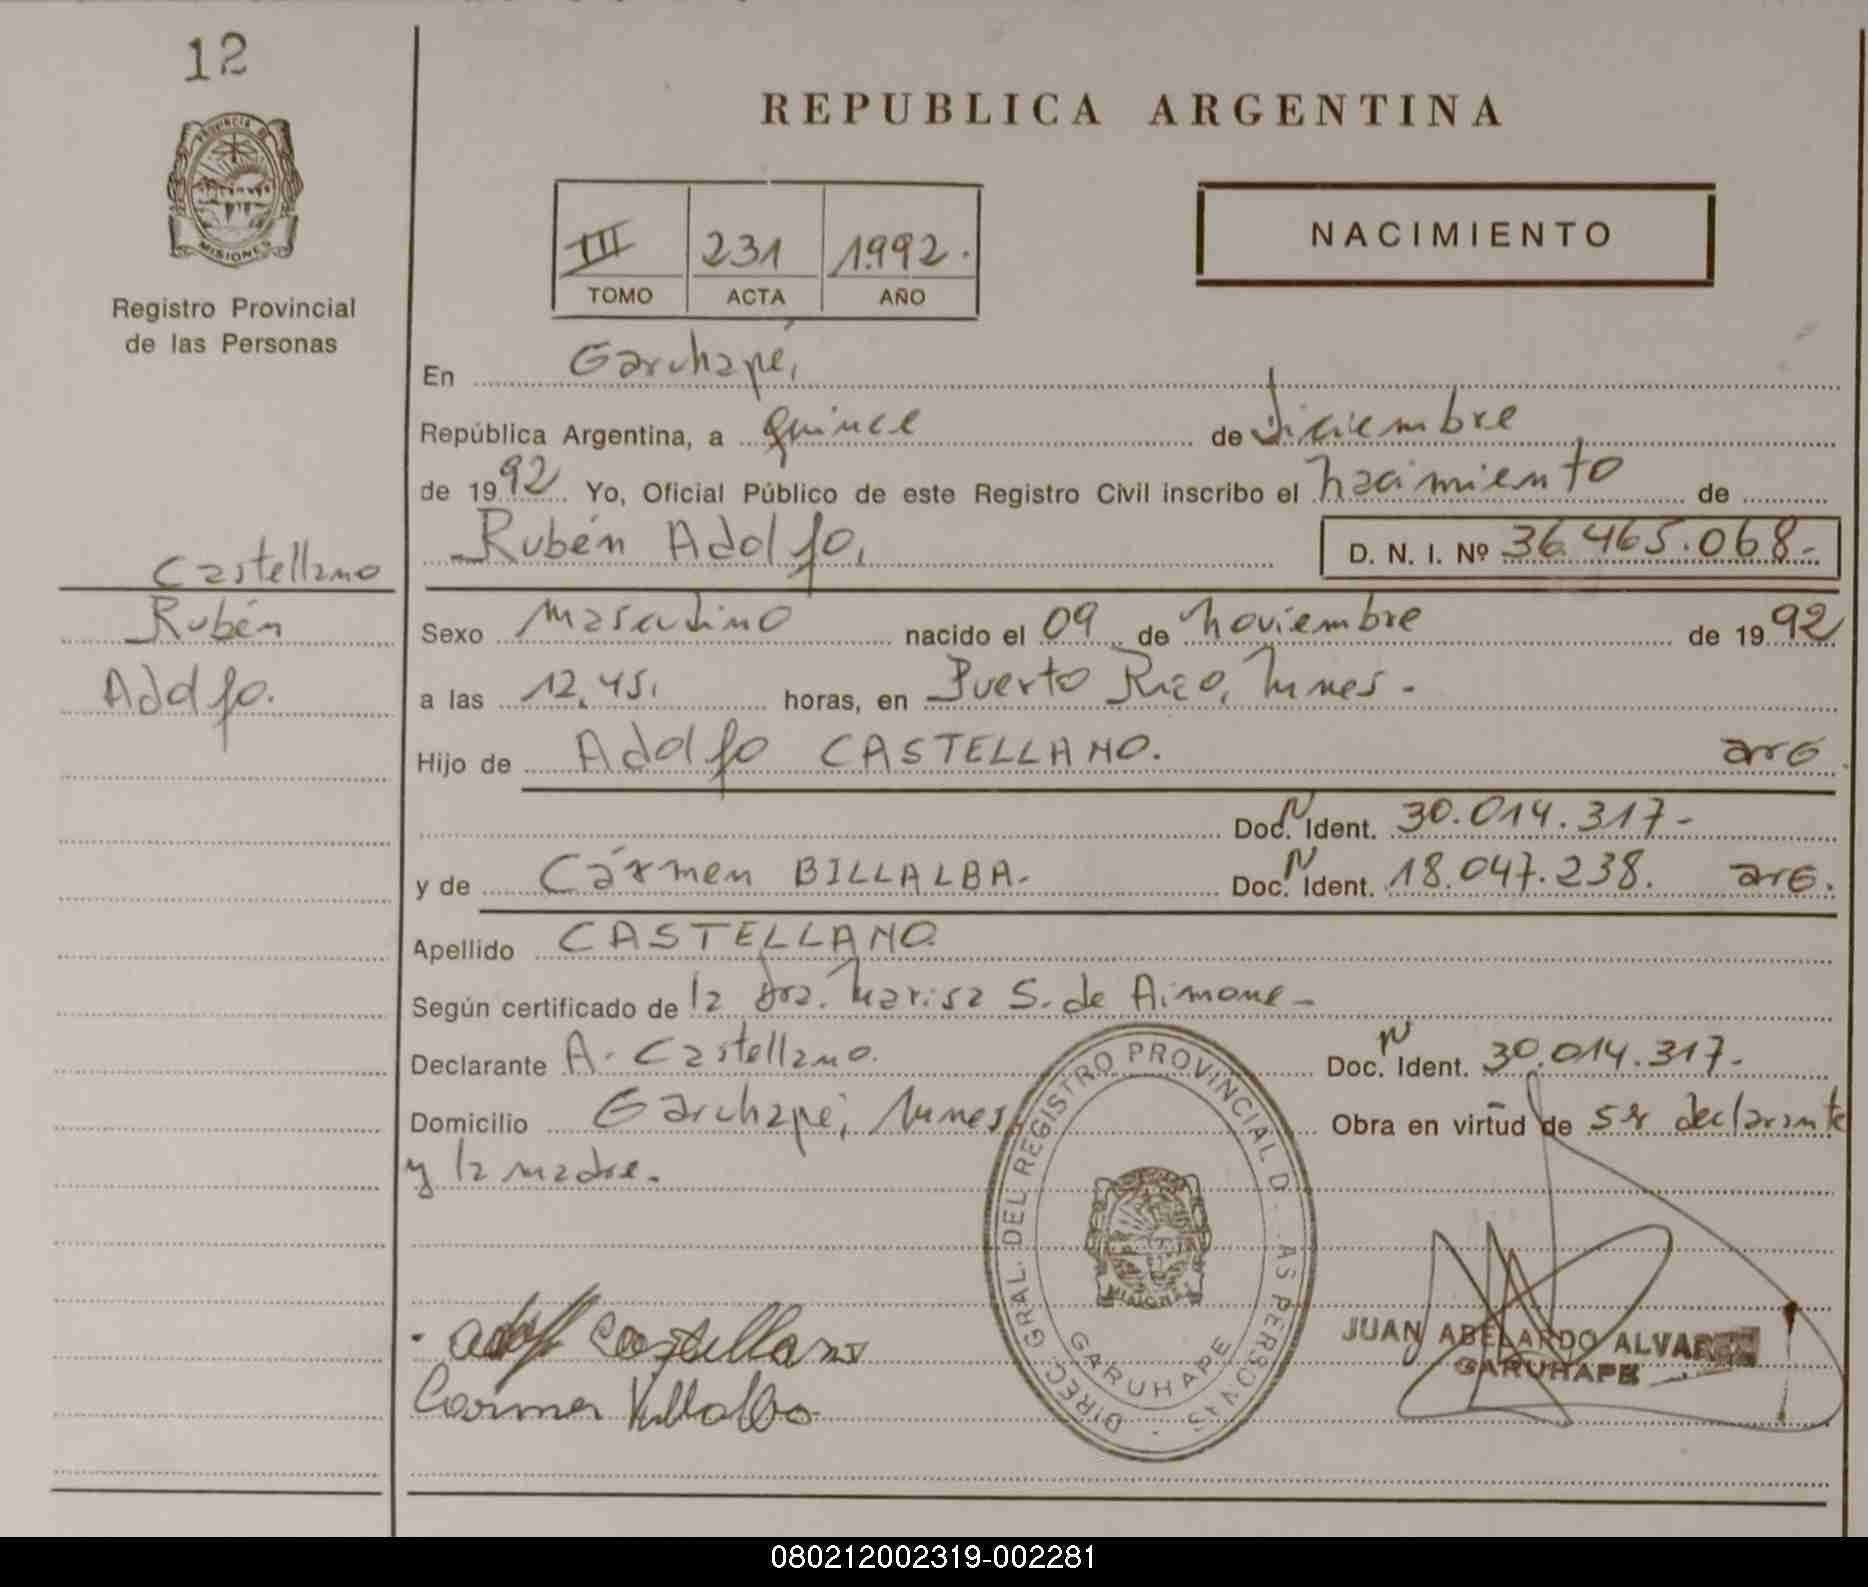 12
PROVINCIA DE
MISIONES
Registro Provincial
de las Personas
Castellano
Rubén
Adolfo.
REPUBLICA ARGENTINA
III 231 1.992.
TOMO ACTA AÑO
NACIMIENTO
En Garuhapé,
República Argentina, a quince de diciembre
de 1992 Yo, Oficial Público de este Registro Civil inscribo el nacimiento de
Rubén Adolfo, D. N. I. Nº 36.465.068.-
Sexo masculino nacido el 09 de noviembre de 1992
a las 12,45, horas, en Puerto Rico, Mnes.-
Hijo de Adolfo CASTELLANO. arg
Doc. N Ident. 30.014.317-
y de Cármen BILLALBA- Doc. N Ident. 18.047.238. arg.
Apellido CASTELLANO
Según certificado de la Dra. Marisa S. de Aimone-
Declarante A. Castellano. Doc. N Ident. 30.014.317-
Domicilio Garuhapé, Mnes Obra en virtud de ser declarante
y la madre.
DIREC. GRAL. DEL REGISTRO PROVINCIAL D AS PERSONAS
MISIONES
GARUHAPE
Adolf Castellano
Carmen Villalba
JUAN ABELARDO ALVAREZ
GARUHAPE
080212002319-002281